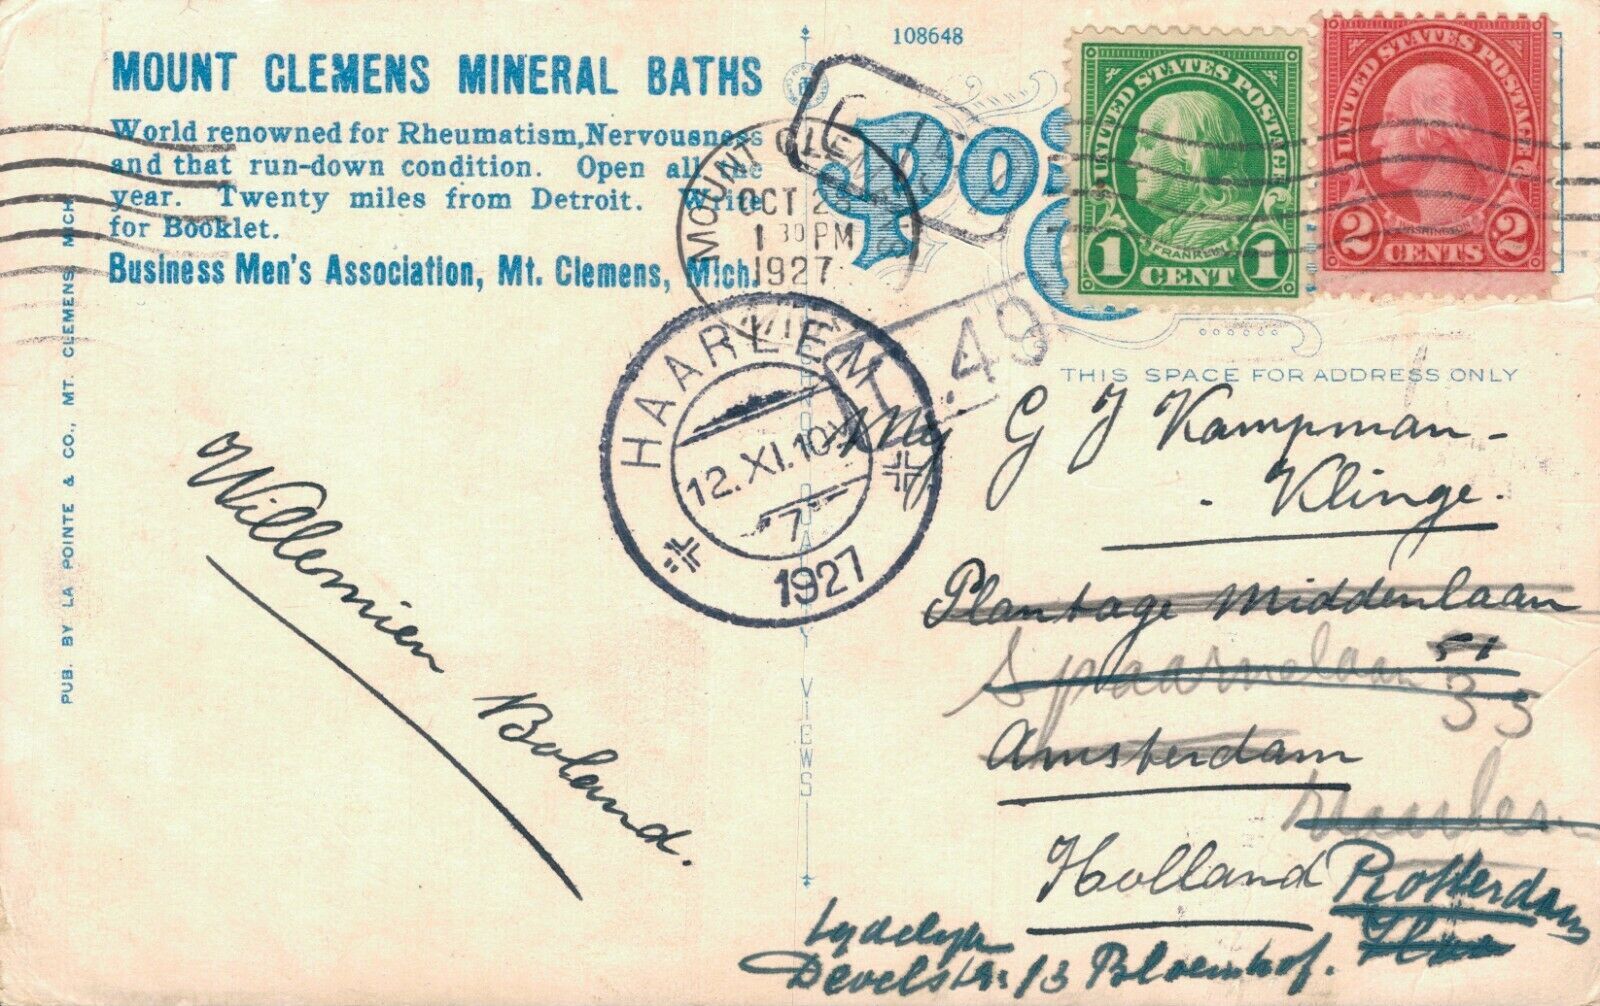 108648
MOUNT CLEMENS MINERAL BATHS
World renowned for Rheumatism, Nervousness
and that run-down condition. Open all the
year. Twenty miles from Detroit. Write
for Booklet.
Business Men's Association, Mt. Clemens, Mich.
PUB. BY LA POINTE & CO., MT. CLEMENS, MICH.
UNITED STATES POSTAGE
FRANKLIN
1 CENT 1
UNITED STATES POSTAGE
WASHINGTON
2 CENTS 2
MOUNT CLEMENS
OCT 2
1 30 PM
1927
MICH.
HAARLEM
12.XI.10
7
1927
.49
THIS SPACE FOR ADDRESS ONLY
G J Kampman -
- Klinge.
Plantage Middenlaan
51
Spaarnelaan 33
Amsterdam
Haarlem
Holland
Rotterdam
tydelyk
Develstr. 13 Bloemhof.
Willemien Boland.
VIEWS